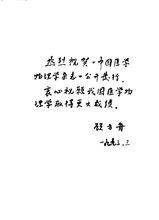 热烈祝贺《中国医学
物理学杂志》公开发行.
衷心祝愿我国医学物
理学取得更大成绩.
一九九三.三